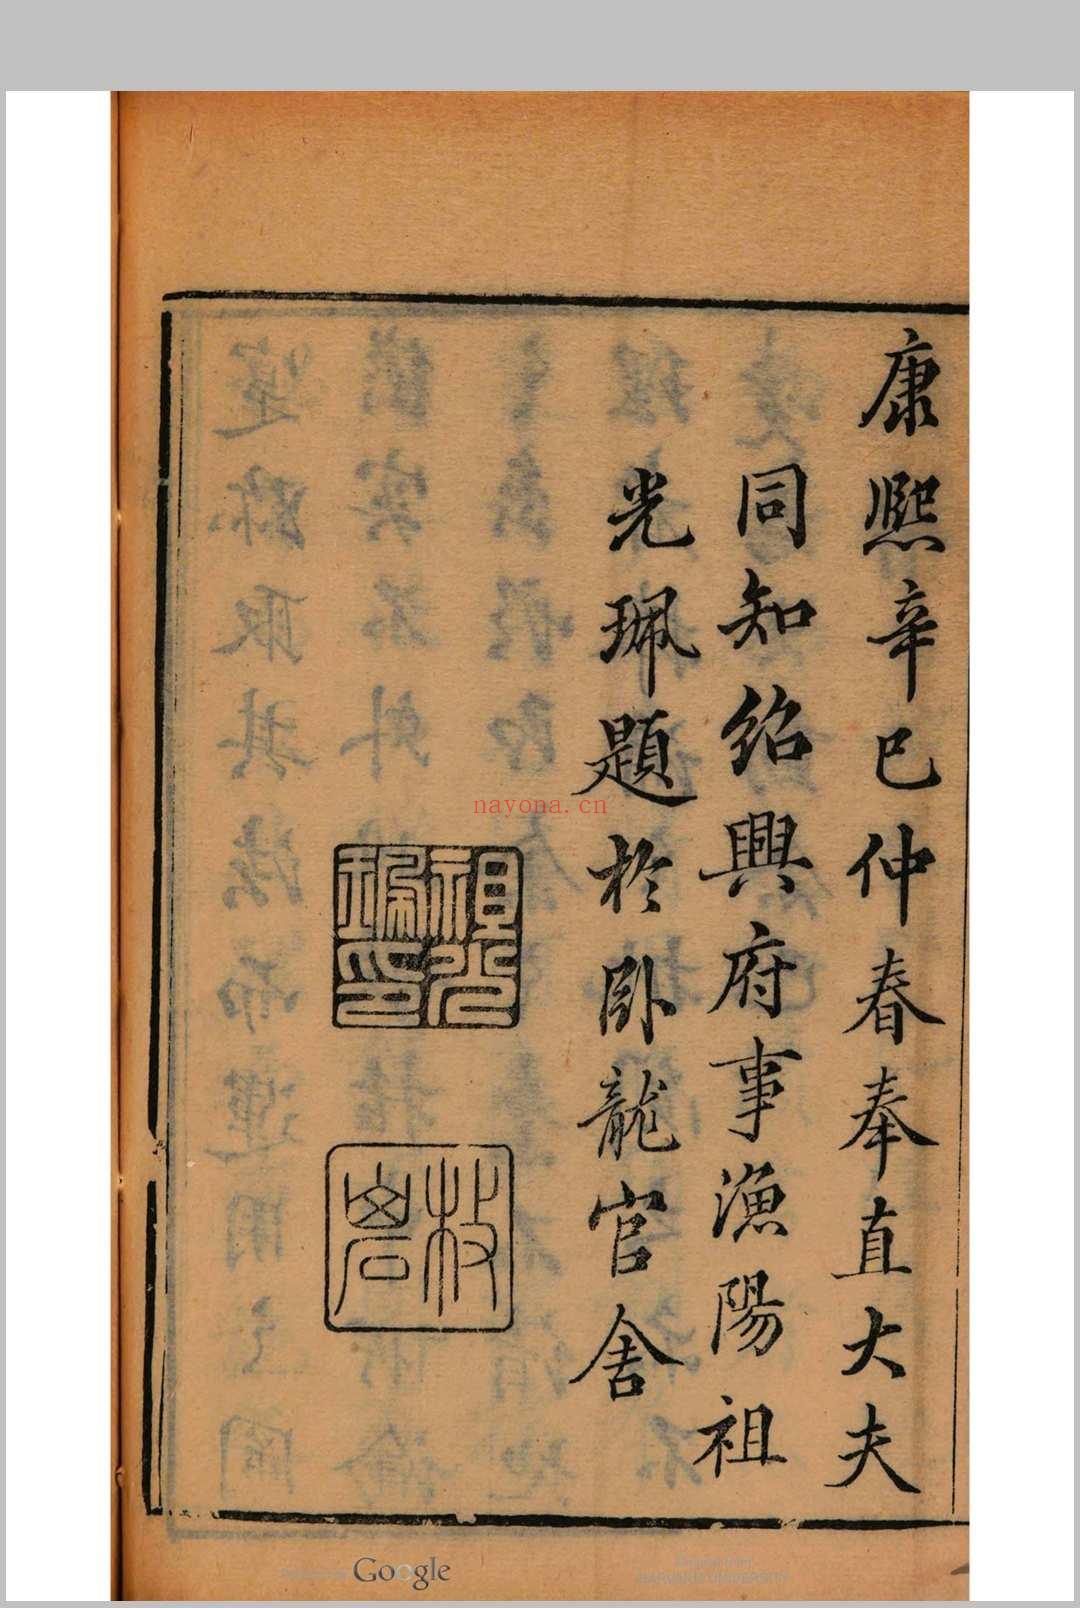 康熙辛巳仲春奉直大夫
同知紹興府事漁陽祖
光珮題於臥龍官舍
祖光珮印
nayona.cn
Google
Original from
HARVARD UNIVERSITY